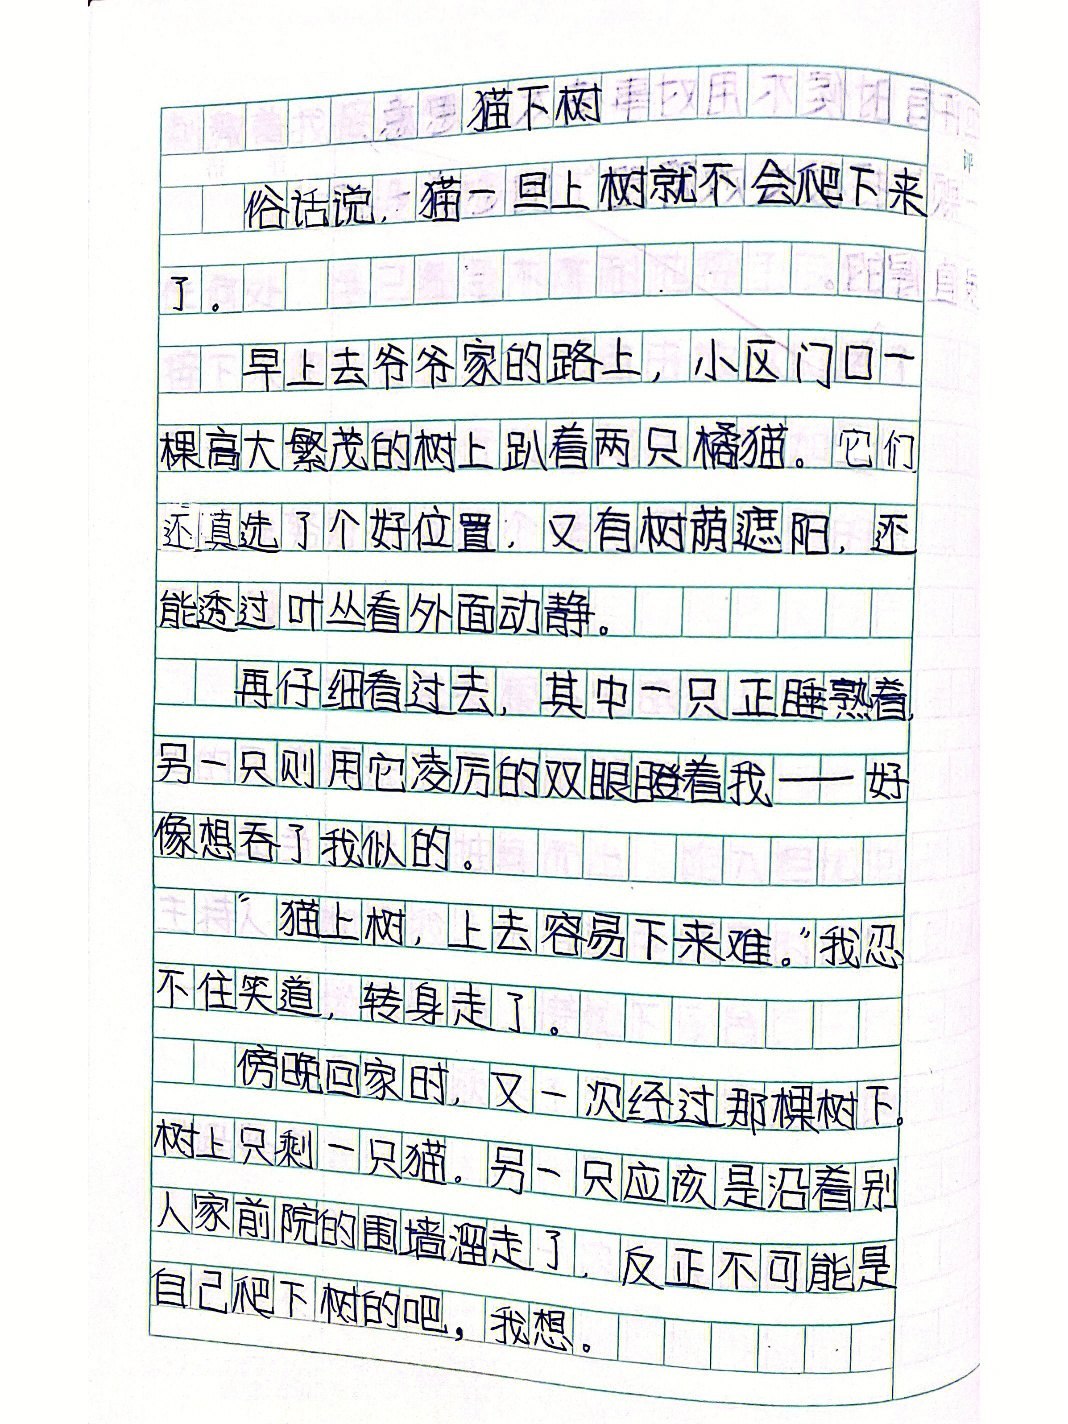 猫下树
俗话说，猫一旦上树就不会爬下来
了。
早上去爷爷家的路上，小区门口一
棵高大繁茂的树上趴着两只橘猫。它们
还真选了个好位置，又有树荫遮阳，还
能透过叶丛看外面动静。
再仔细看过去，其中一只正睡熟着，
另一只则用它凌厉的双眼瞪着我——好
像想吞了我似的。
“猫上树，上去容易下来难。”我忍
不住笑道，转身走了。
傍晚回家时，又一次经过那棵树下。
树上只剩一只猫。另一只应该是沿着别
人家前院的围墙溜走了，反正不可能是
自己爬下树的吧，我想。